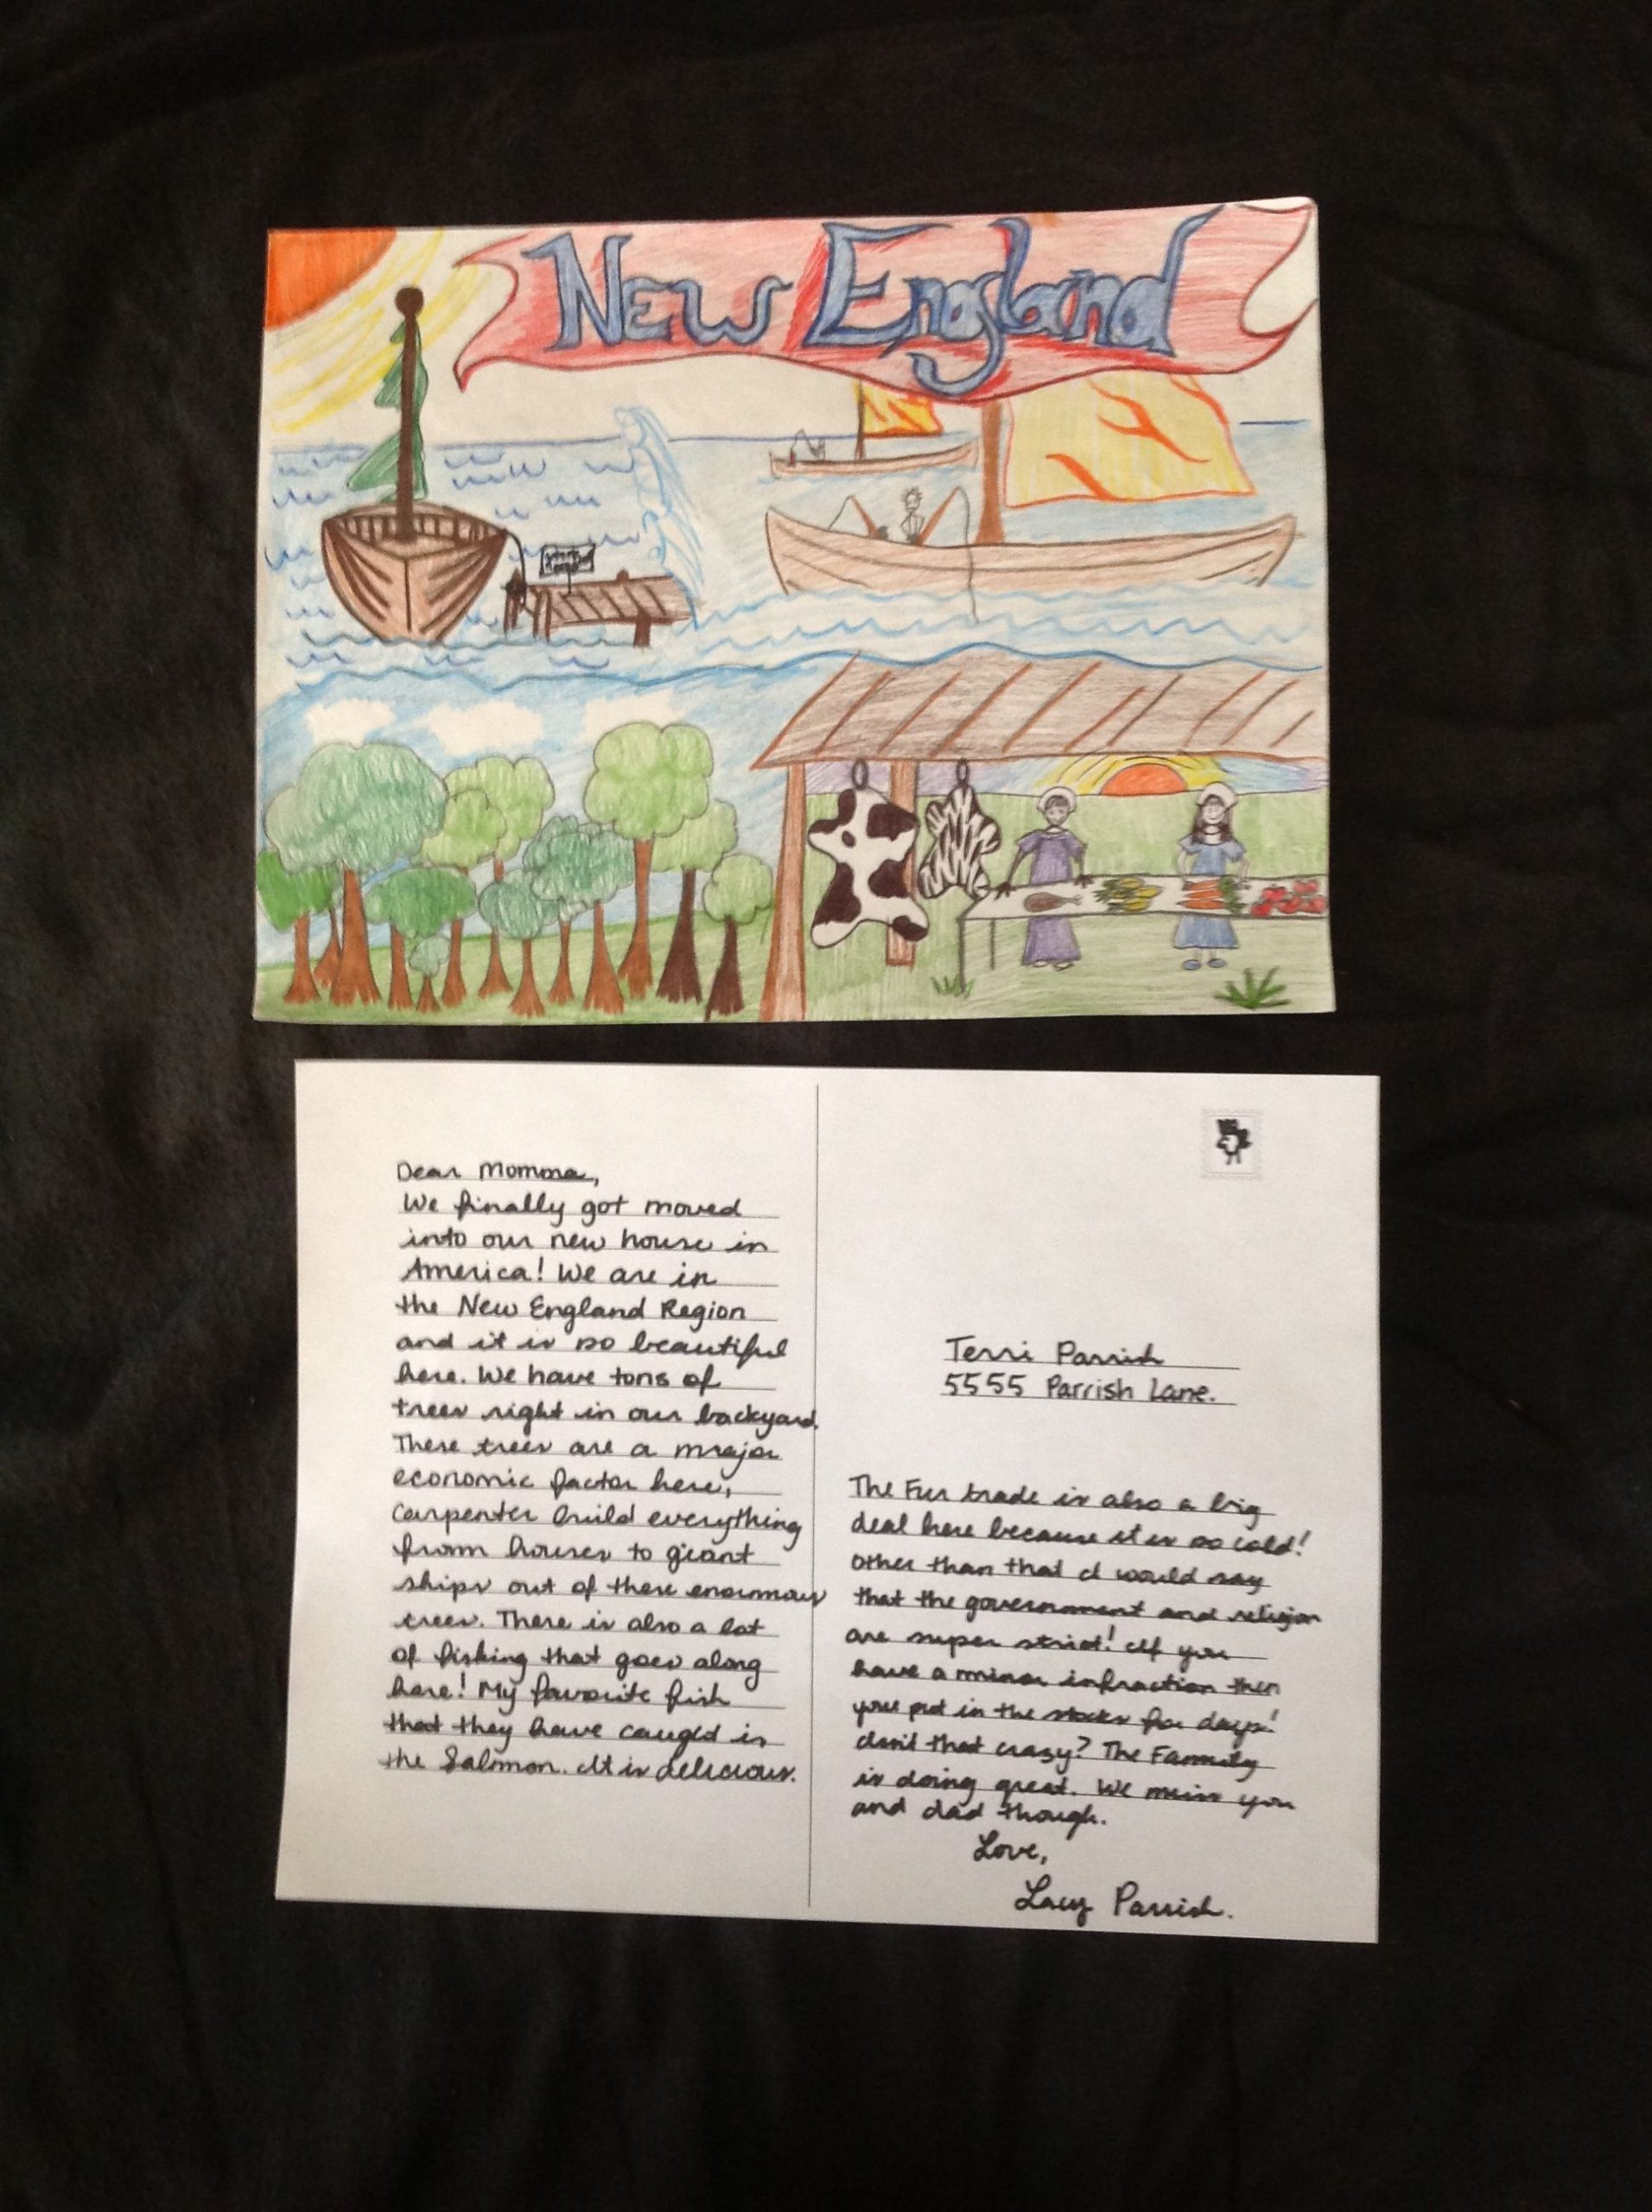 New England
Dear Momma,
We finally got moved
into our new house in
America! We are in
the New England Region
and it is so beautiful
here. We have tons of
trees right in our backyard.
These trees are a major
economic factor here,
Carpenter build everything
from houses to giant
ships out of these enormous
trees. There is also a lot
of fishing that goes along
here! My favorite fish
that they have caught is
the Salmon. It is delicious.
Terri Parrish
5555 Parrish Lane.
The Fur trade is also a big
deal here because it is so cold!
Other than that I would say
that the government and religion
are super strict! If you
have a minor infraction then
your put in the stocks for days!
Isn't that crazy? The Fammily
is doing great. We miss you
and dad though.
Love,
Lacy Parrish.